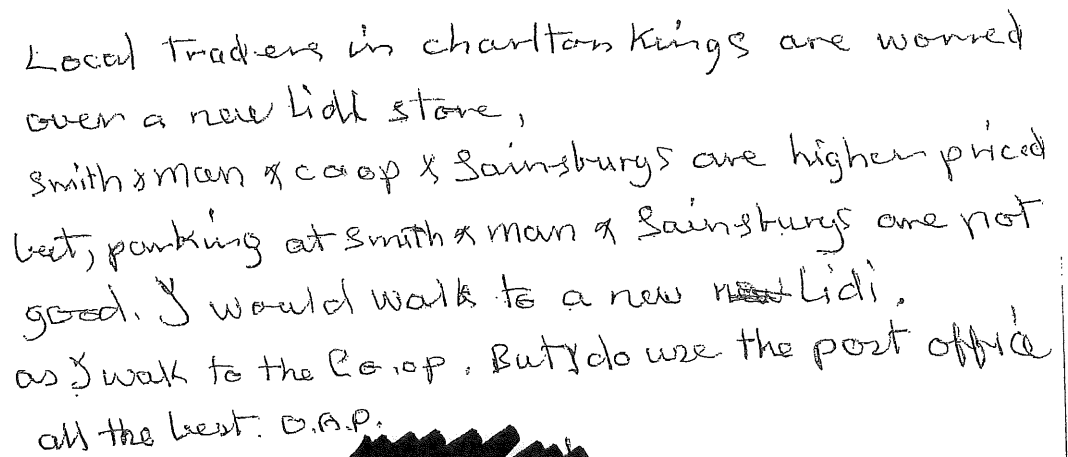 Local Traders in charlton Kings are worred
over a new Lidl store,
Smith & man & coop & Sainsburys are higher priced
but, parking at Smith & man & Sainsburys are not
good. I would walk to a new new Lidi.
as I walk to the Co.op. But I do use the post office
all the best. O.A.P.